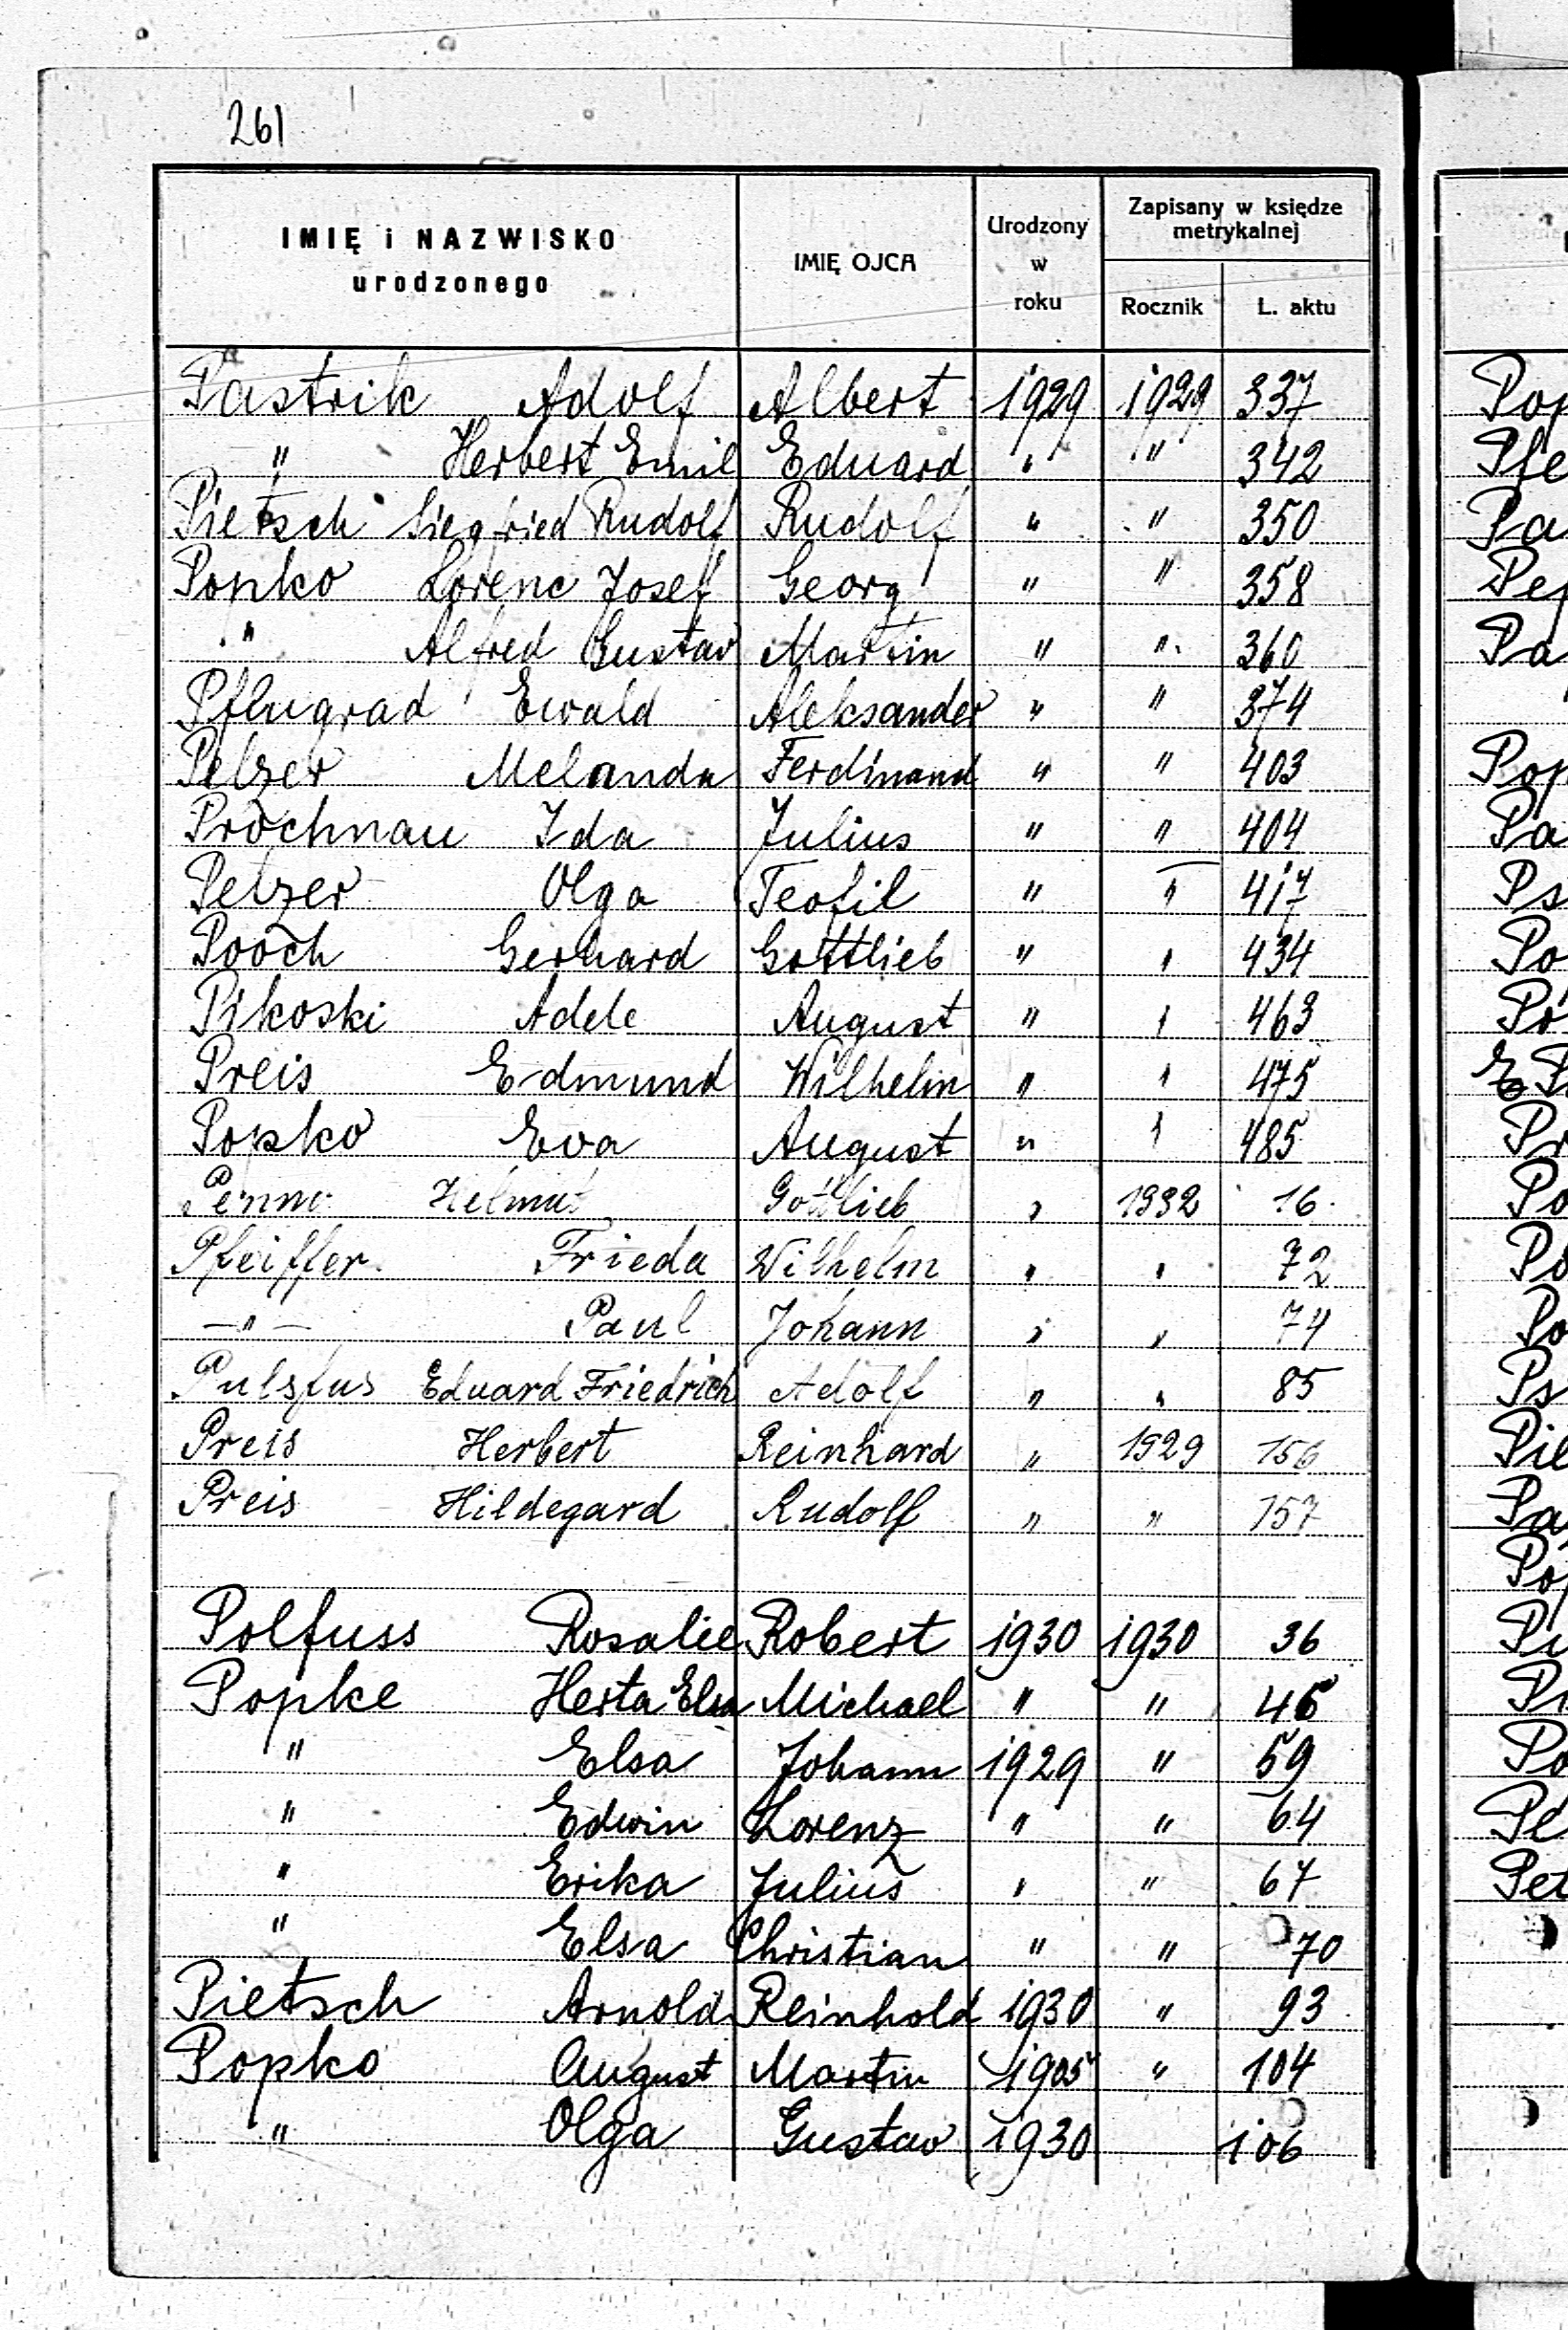 261
IMIĘ i NAZWISKO urodzonego IMIĘ OJCA Urodzony w roku Zapisany w księdze metrykalnej Rocznik L. aktu
Pastrik Adolf Albert 1929 1929 337
" Herbert Emil Eduard " " 342
Pietsch Siegfried Rudolf Rudolf " " 350
Popko Lorenc Josef Georg " " 358
" Alfred Gustav Martin " " 360
Pflugrad Ewald Aleksander " " 374
Pelzer Melanda Ferdinand " " 403
Prochnau Ida Julius " " 404
Pelzer Olga Teofil " " 417
Pooch Gerhard Gottlieb " " 434
Pikoski Adele August " " 463
Preis Edmund Wilhelm " " 475
Popko Eva August " " 485
Penno Helmut Gottlieb " 1932 16
Pfeiffer Frieda Wilhelm " " 72
—"— Paul Johann " " 74
Pulsfus Eduard Friedrich Adolf " " 85
Preis Herbert Reinhard " 1929 156
Preis Hildegard Rudolf " " 157
Polfuss Rosalie Robert 1930 1930 36
Popke Herta Elsa Michael " " 45
" Elsa Johann 1929 " 59
" Edwin Lorenz " " 64
" Erika Julius " " 67
" Elsa Christian " " 70
Pietsch Arnold Reinhold 1930 " 93
Popko August Martin 1905 " 104
" Olga Gustav 1930 106